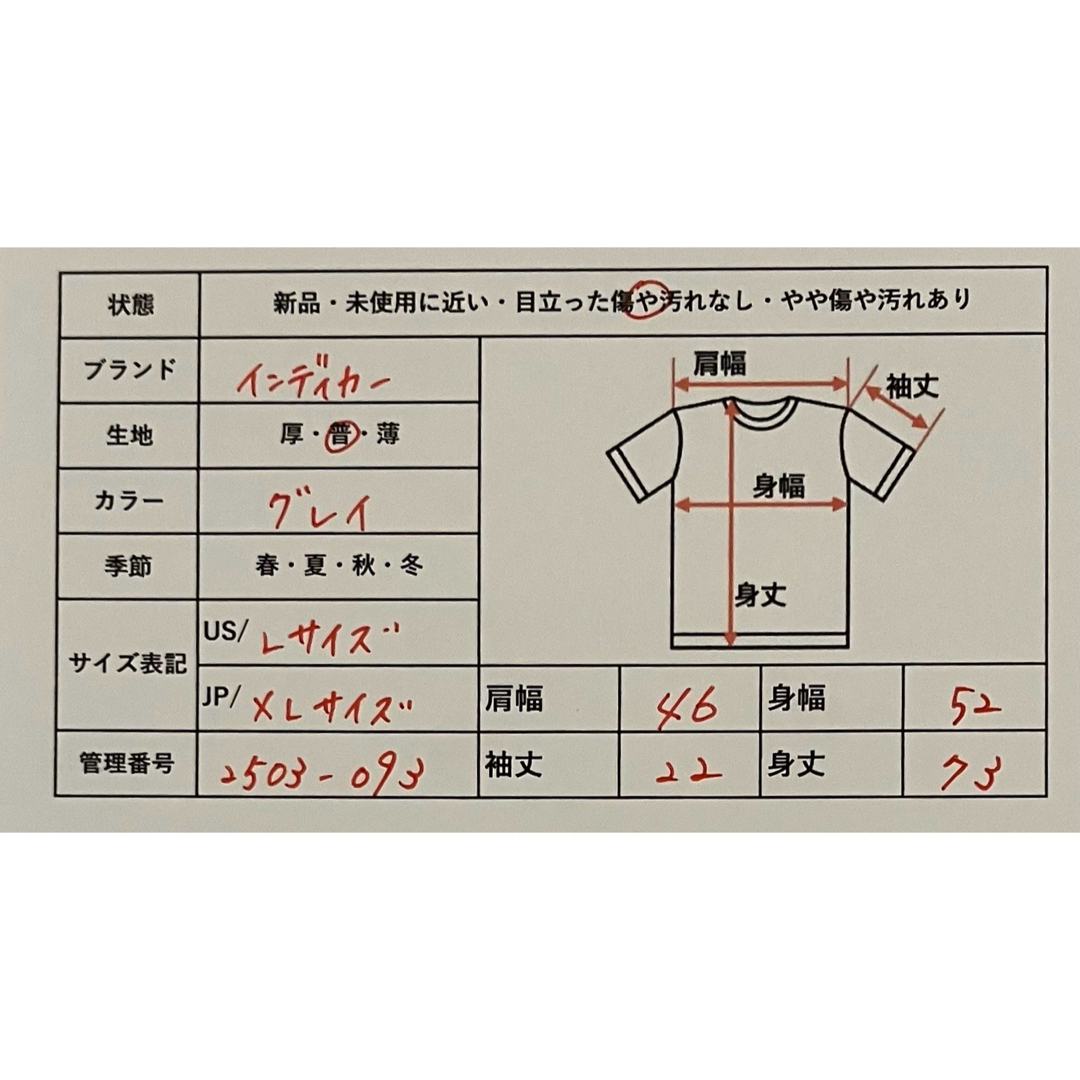 状態 新品・未使用に近い・目立った傷や汚れなし・やや傷や汚れあり
ブランド インディカー
生地 厚・普・薄
カラー グレイ
季節 春・夏・秋・冬
サイズ表記
US/ Lサイズ
JP/ XLサイズ
管理番号 2503-093
肩幅
袖丈
身幅
身丈
肩幅 46 身幅 52
袖丈 22 身丈 73